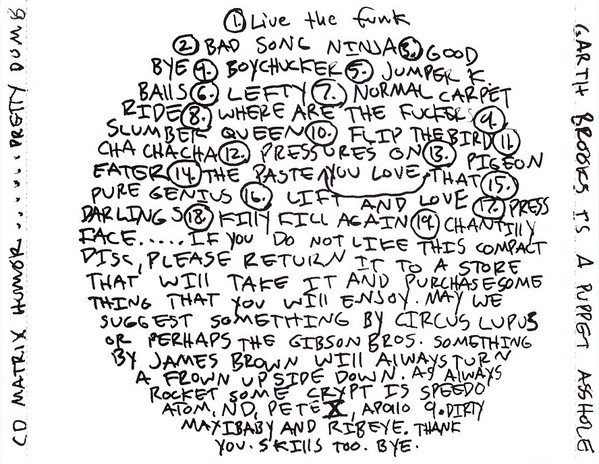 1. Live the funk
2. BAD SONG NINJA 3. GOOD
BYE 4. BOYCHUCKER 5. JUMPER K.
BALLS 6. LEFTY 7. NORMAL CARPET
RIDE 8. WHERE ARE THE FUCKERS 9.
SLUMBER QUEEN 10. FLIP THE BIRD 11.
CHA CHA CHA 12. PRESSURES ON 13. PIGEON
EATER 14. THE PASTE YOU LOVE THAT 15.
PURE GENIUS 16. LIFT AND LOVE 17. PRESS
DARLINGS 18. KILLY KILL AGAIN 19. CHANTILLY
FACE..... IF YOU DO NOT LIKE THIS COMPACT
DISC, PLEASE RETURN IT TO A STORE
THAT WILL TAKE IT AND PURCHASE SOME
THING THAT YOU WILL ENJOY. MAY WE
SUGGEST SOMETHING BY CIRCUS LUPUS
OR PERHAPS THE GIBSON BROS. SOMETHING
BY JAMES BROWN WILL ALWAYS TURN
A FROWN UPSIDE DOWN. AS ALWAYS
ROCKET SOME CRYPT IS SPEEDO
ATOM, ND, PETE X, APOLLO 9. DIRTY
MAXIBABY AND RIBEYE. THANK
YOU. SKILLS TOO. BYE.
CD MATRIX HUMOR....... PRETTY DUMB
GARTH BROOKS IS A PUPPET ASSHOLE